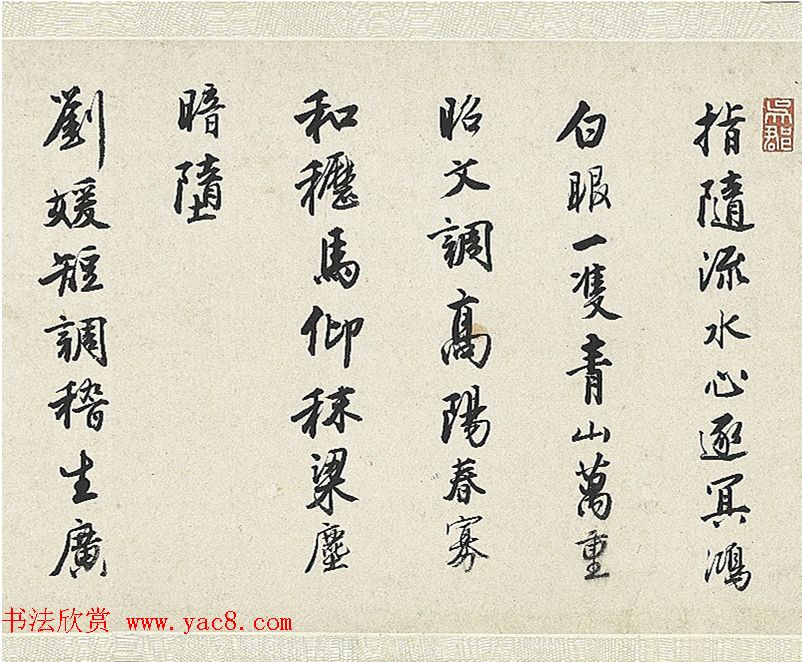 吳郡
指隨流水心逐冥鴻
白眼一隻青山萬重
昭文調高陽春寡
和櫪馬仰秣梁塵
暗墮
劉媛短調稽生廣
书法欣赏 www.yac8.com